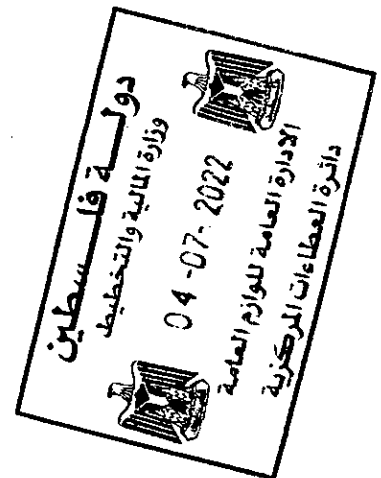 دولة فلسطين
وزارة المالية والتخطيط
04-07-2022
الادارة العامة للوازم العامة
دائرة العطاءات المركزية